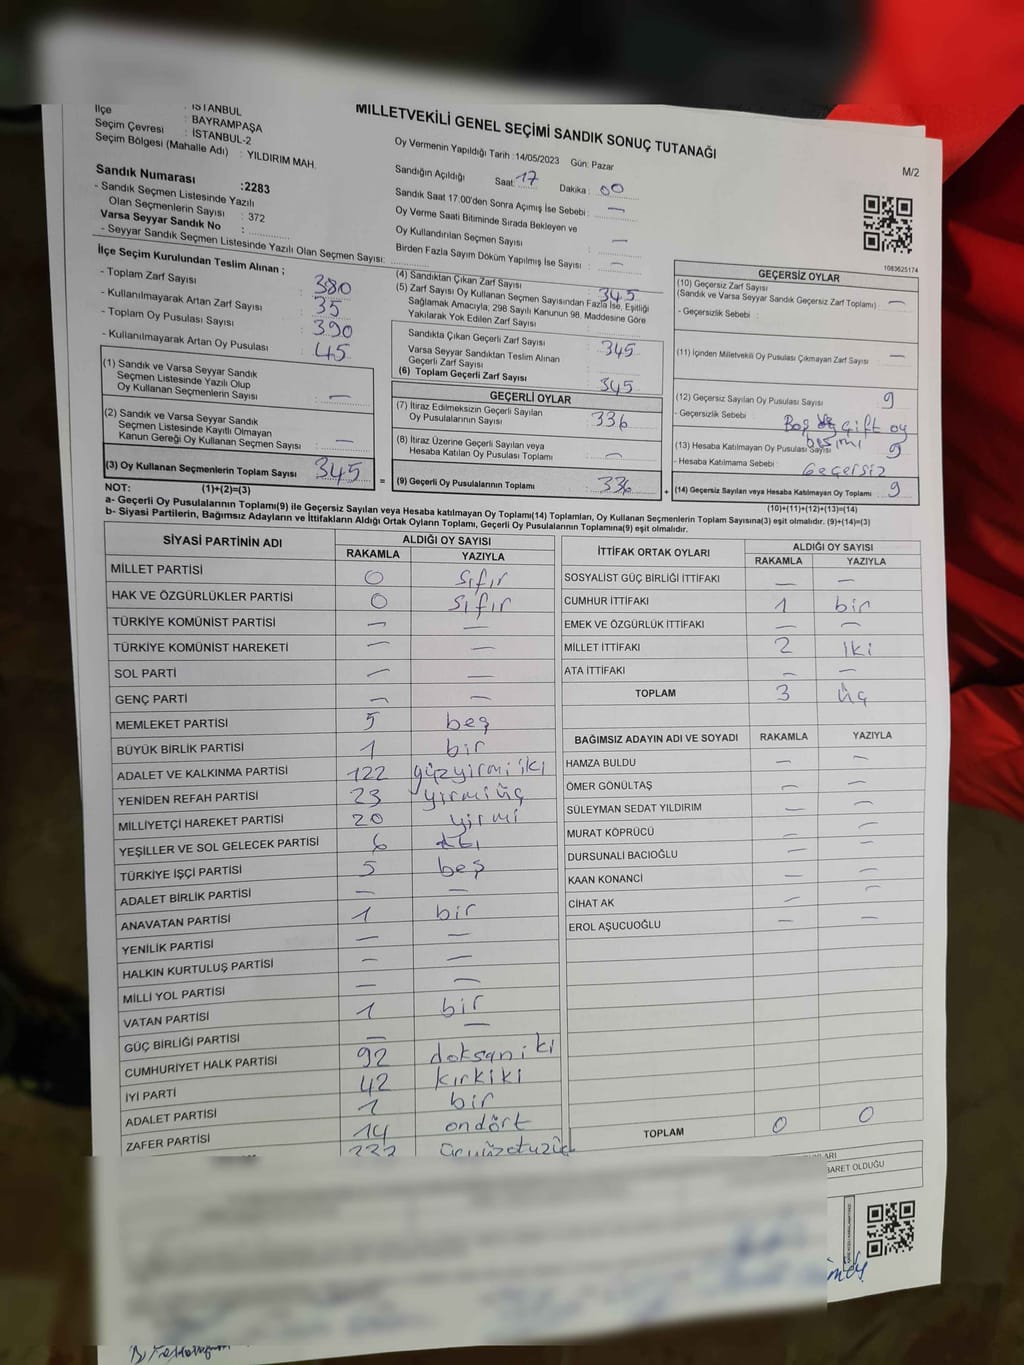 MİLLETVEKİLİ GENEL SEÇİMİ SANDIK SONUÇ TUTANAĞI
M/2
İSTANBUL
İlçe : BAYRAMPAŞA
Seçim Çevresi : İSTANBUL-2
Seçim Bölgesi (Mahalle Adı) : YILDIRIM MAH.
Oy Vermenin Yapıldığı Tarih :14/05/2023 Gün: Pazar
Sandığın Açıldığı Saat: 17 Dakika : 00
Sandık Saat 17:00'den Sonra Açımış İse Sebebi : —
Oy Verme Saati Bitiminde Sırada Bekleyen ve
Oy Kullandırılan Seçmen Sayısı : —
Birden Fazla Sayım Döküm Yapılmış İse Sayısı : —
Sandık Numarası :2283
- Sandık Seçmen Listesinde Yazılı
Olan Seçmenlerin Sayısı : 372
Varsa Seyyar Sandık No :
- Seyyar Sandık Seçmen Listesinde Yazılı Olan Seçmen Sayısı:
1083625174
İlçe Seçim Kurulundan Teslim Alınan ;
- Toplam Zarf Sayısı : 380
- Kullanılmayarak Artan Zarf Sayısı : 35
- Toplam Oy Pusulası Sayısı : 390
- Kullanılmayarak Artan Oy Pusulası : 45
(1) Sandık ve Varsa Seyyar Sandık
Seçmen Listesinde Yazılı Olup
Oy Kullanan Seçmenlerin Sayısı : —
(2) Sandık ve Varsa Seyyar Sandık
Seçmen Listesinde Kayıtlı Olmayan
Kanun Gereği Oy Kullanan Seçmen Sayısı : —
(3) Oy Kullanan Seçmenlerin Toplam Sayısı : 345
(1)+(2)=(3)
(4) Sandıktan Çıkan Zarf Sayısı : 345
(5) Zarf Sayısı Oy Kullanan Seçmen Sayısından Fazla İse, Eşitliği
Sağlamak Amacıyla, 298 Sayılı Kanunun 98. Maddesine Göre
Yakılarak Yok Edilen Zarf Sayısı :
Sandıkta Çıkan Geçerli Zarf Sayısı : 345
Varsa Seyyar Sandıktan Teslim Alınan
Geçerli Zarf Sayısı :
(6) Toplam Geçerli Zarf Sayısı : 345
GEÇERLİ OYLAR
(7) İtiraz Edilmeksizin Geçerli Sayılan
Oy Pusulalarının Sayısı : 336
(8) İtiraz Üzerine Geçerli Sayılan veya
Hesaba Katılan Oy Pusulası Toplamı : —
= (9) Geçerli Oy Pusulalarının Toplamı : 336
GEÇERSİZ OYLAR
(10) Geçersiz Zarf Sayısı
(Sandık ve Varsa Seyyar Sandık Geçersiz Zarf Toplamı) : —
- Geçersizlik Sebebi :
(11) İçinden Milletvekili Oy Pusulası Çıkmayan Zarf Sayısı : —
(12) Geçersiz Sayılan Oy Pusulası Sayısı : 9
- Geçersizlik Sebebi : Boş çift oy
(13) Hesaba Katılmayan Oy Pusulası Sayısı : 9
- Hesaba Katılmama Sebebi : Geçersiz
+ (14) Geçersiz Sayılan veya Hesaba Katılmayan Oy Toplamı : 9
(10)+(11)+(12)+(13)=(14)
NOT:
a- Geçerli Oy Pusulalarının Toplamı(9) ile Geçersiz Sayılan veya Hesaba katılmayan Oy Toplamı(14) Toplamları, Oy Kullanan Seçmenlerin Toplam Sayısına(3) eşit olmalıdır. (9)+(14)=(3)
b- Siyasi Partilerin, Bağımsız Adayların ve İttifakların Aldığı Ortak Oyların Toplamı, Geçerli Oy Pusulalarının Toplamına(9) eşit olmalıdır.
SİYASİ PARTİNİN ADI ALDIĞI OY SAYISI
RAKAMLA YAZIYLA
MİLLET PARTİSİ 0 sıfır
HAK VE ÖZGÜRLÜKLER PARTİSİ 0 sıfır
TÜRKİYE KOMÜNİST PARTİSİ — —
TÜRKİYE KOMÜNİST HAREKETİ — —
SOL PARTİ — —
GENÇ PARTİ — —
MEMLEKET PARTİSİ 5 beş
BÜYÜK BİRLİK PARTİSİ 1 bir
ADALET VE KALKINMA PARTİSİ 122 yüzyirmi iki
YENİDEN REFAH PARTİSİ 23 yirmi üç
MİLLİYETÇİ HAREKET PARTİSİ 20 yirmi
YEŞİLLER VE SOL GELECEK PARTİSİ 6 altı
TÜRKİYE İŞÇİ PARTİSİ 5 beş
ADALET BİRLİK PARTİSİ — —
ANAVATAN PARTİSİ 1 bir
YENİLİK PARTİSİ — —
HALKIN KURTULUŞ PARTİSİ — —
MİLLİ YOL PARTİSİ — —
VATAN PARTİSİ 1 bir
GÜÇ BİRLİĞİ PARTİSİ — —
CUMHURİYET HALK PARTİSİ 92 doksan iki
İYİ PARTİ 42 kırkiki
ADALET PARTİSİ 1 bir
ZAFER PARTİSİ 14 ondört
İTTİFAK ORTAK OYLARI ALDIĞI OY SAYISI
RAKAMLA YAZIYLA
SOSYALİST GÜÇ BİRLİĞİ İTTİFAKI — —
CUMHUR İTTİFAKI 1 bir
EMEK VE ÖZGÜRLÜK İTTİFAKI — —
MİLLET İTTİFAKI 2 iki
ATA İTTİFAKI — —
TOPLAM 3 üç
BAĞIMSIZ ADAYIN ADI VE SOYADI RAKAMLA YAZIYLA
HAMZA BULDU — —
ÖMER GÖNÜLTAŞ — —
SÜLEYMAN SEDAT YILDIRIM — —
MURAT KÖPRÜCÜ — —
DURSUNALİ BACIOĞLU — —
KAAN KONANCI — —
CİHAT AK — —
EROL AŞUCUOĞLU — —
TOPLAM 0 0
BARET OLDUĞU